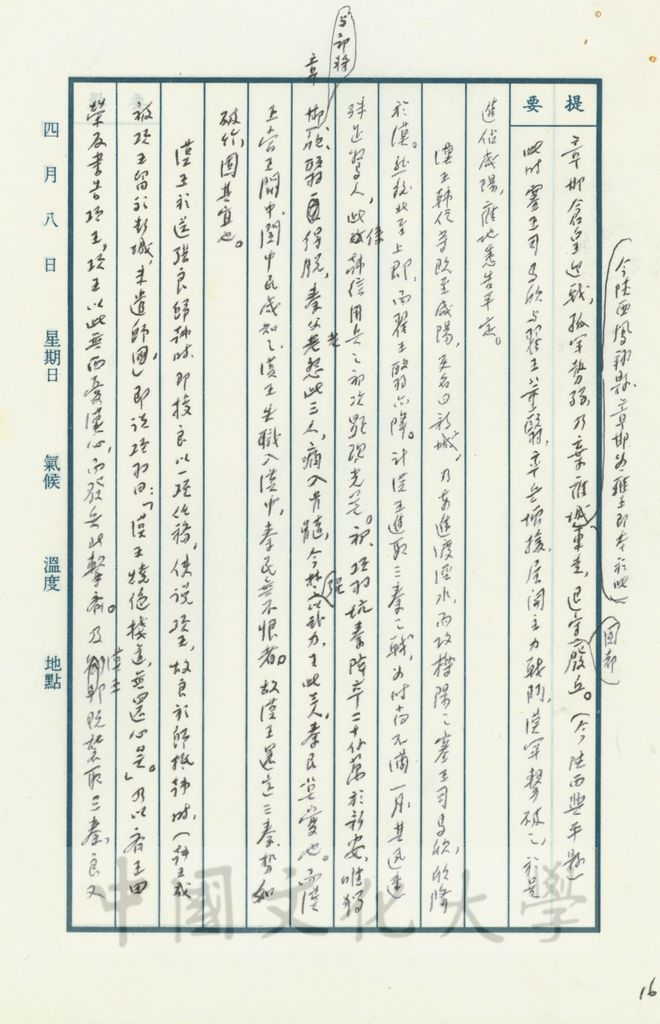 提要
四月八日 星期日 氣候 溫度 地點
與部將
(今陝西鳳翔縣,章邯為雍王即本於此)
國都
章邯倉皇迎戰,孤軍勢弱,乃棄雍城東走,退守廢丘。(今陝西興平縣)
此時塞王司馬欣與翟王董翳,率兵增援,展開主力戰鬥,漢軍擊破之,於是
進佔咸陽,雍地悉告平定。
漢王韓信等既至咸陽,更名曰新城,乃東進渡涇水,而攻櫟陽之塞王司馬欣,欣降
於漢。然後北至上郡,而翟王董翳亦降。計漢王進取三秦之戰,為時尚不滿一月,其迅速
殊足驚人,此係韓信用兵之初次顯現光芒。初,項羽坑秦降卒二十餘萬於新安,唯獨
章邯、欣、翳得脫,秦父老怨此三人,痛入骨髓,今楚強以武力,王此三人,秦民莫愛也。而漢
王當王關中,關中民咸知之,漢王失職入漢中,秦民無不恨者。故漢王還定三秦,勢如
破竹,固其宜也。
漢王於送張良歸韓時,即授良以一項任務,使說項王,故良於歸抵韓時,(韓王成
被項王留於彭城,未遣歸國)即說項羽曰:「漢王燒絕棧道,無還心矣。」乃以齊王田
榮反書告項王,項王以此無西憂漢心,而發兵北擊齊。及漢王既襲取三秦,良又
16
中國文化大學